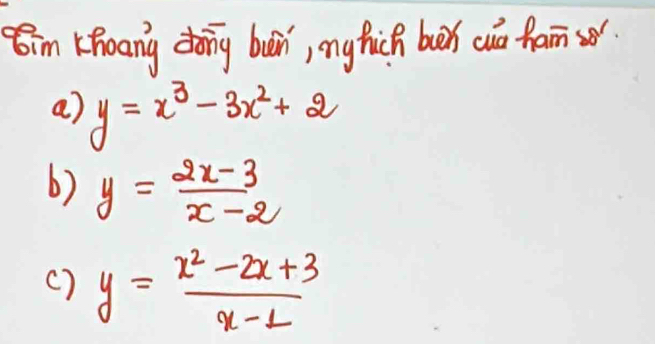 Tìm khoảng đồng biến, nghịch biến của hàm số.
a) y = x³ - 3x² + 2
b) y = \frac{2x-3}{x-2}
c) y = \frac{x² - 2x + 3}{x - 1}